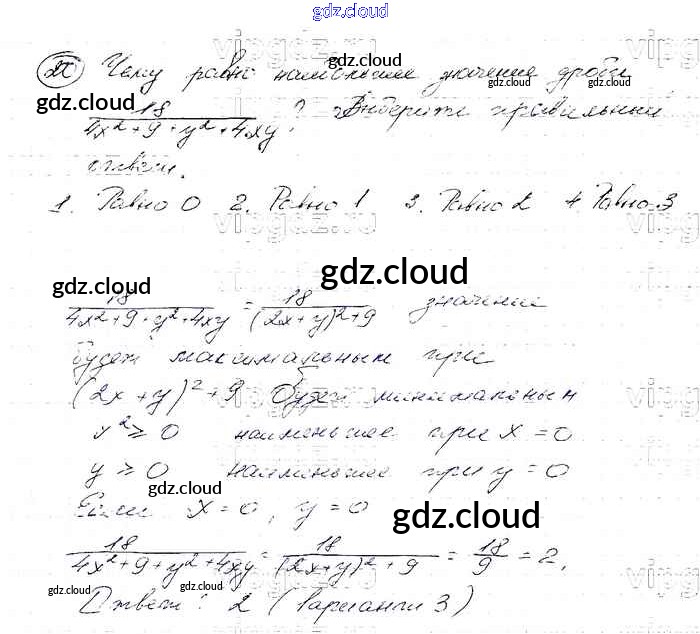 gdz.cloud
Чему равно наибольшее значение дроби
gdz.cloud
18
4x² + 9 + y² + 4xy ? Выберите правильный
ответ.
1. Равно 0 2. Равно 1 3. Равно 2 4. Равно 3
gdz.cloud
18 / 4x² + 9 + y² + 4xy = 18 / (2x + y)² + 9 значение
будет максимальным при
(2x + y)² + 9 будет минимальным
x² ≥ 0 наименьшее при x = 0
y ≥ 0 наименьшее при y = 0
gdz.cloud
Если x = 0, y = 0
gdz.cloud
18 / 4x² + 9 + y² + 4xy = 18 / (2x + y)² + 9 = 18 / 9 = 2.
gdz.cloud
Ответ: 2 (вариант 3)